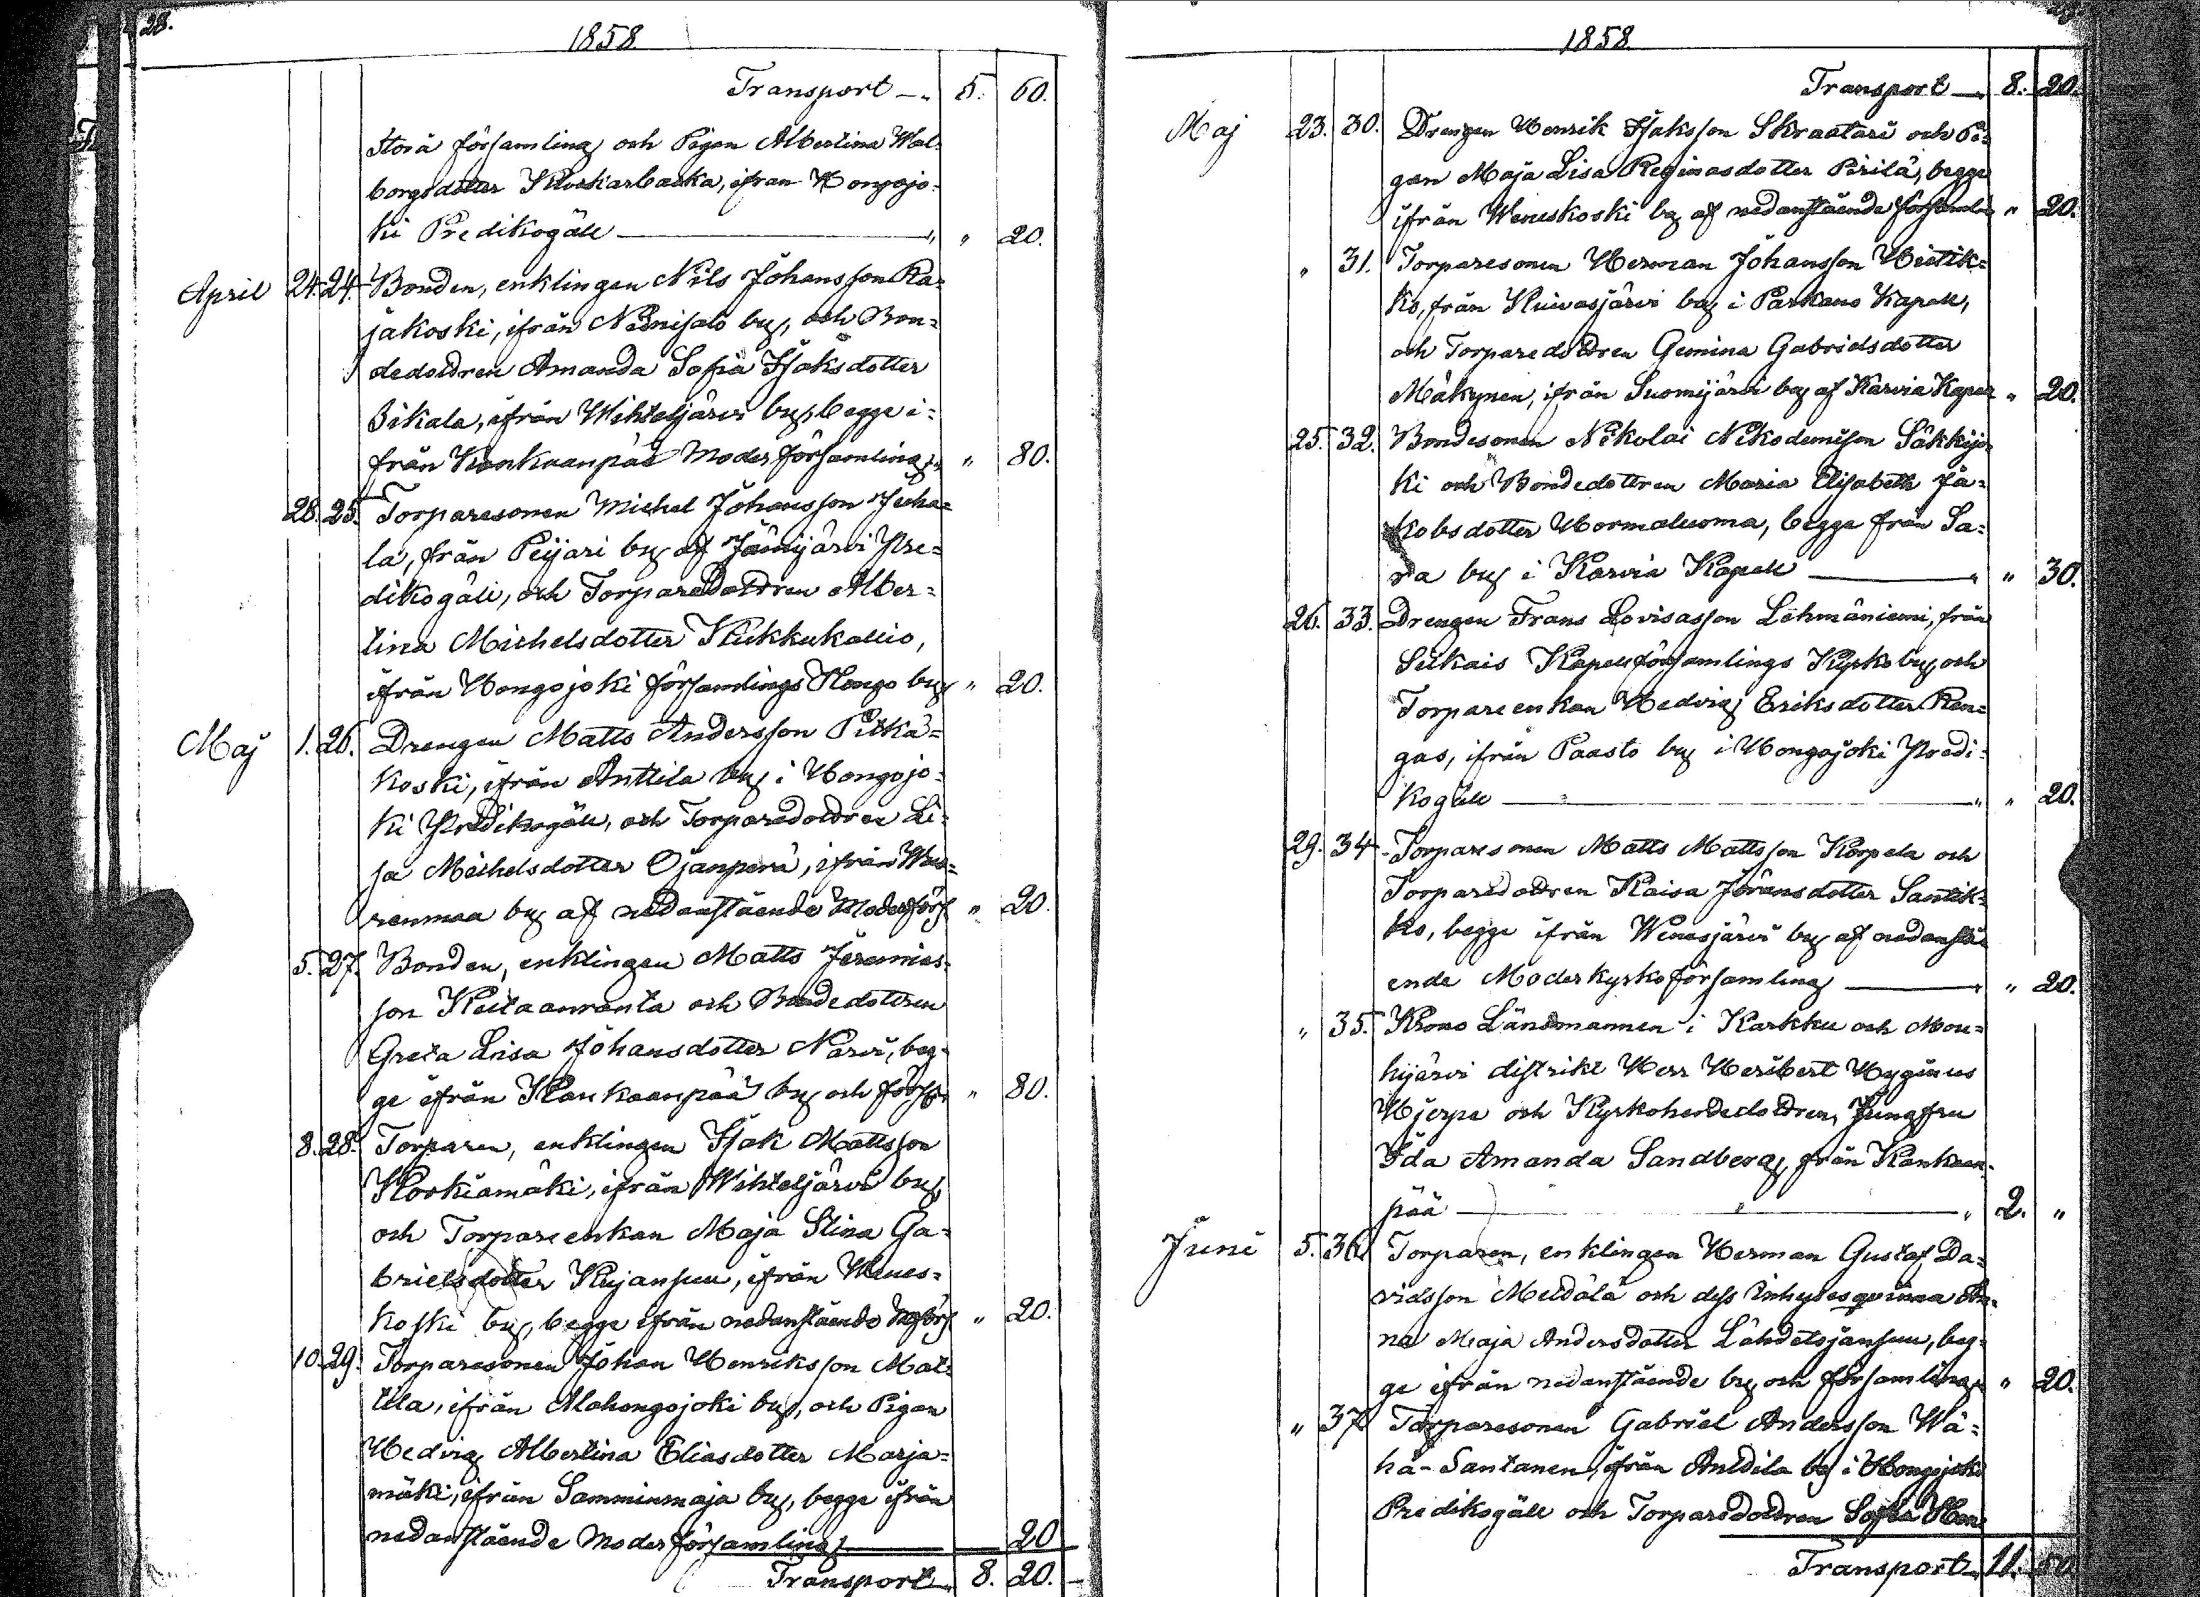 28.
1858
Transport — „ 5. 60.
storå församling och Pigan Albertina Wal-
borgsdotter Kloskarbacka, ifrån Hongojo-
ki Predikogäll — „ „ 20.
April 24. 24. Bonden, enklingen Nils Johansson Ra-
jakoski, ifrån Niinisalo by, och Bon-
dedottren Amanda Sofia Isaksdotter
Sikala, ifrån Wihteljärvi by, begge i-
från Kankaanpää Moder församling „ „ 80.
28. 25. Torparesonen Michel Johansson Juha-
la, från Peijari by af Jämijärvi Pre-
dikogäll, och Torparedottren Alber-
tina Michelsdotter Kukkukallio,
ifrån Hongojoki församlings Hongo by „ 20.
Maj 1. 26. Drengen Matts Andersson Pitkä-
koski, ifrån Anttila by i Hongojo-
ki Predikogäll, och Torparedottren Li-
sa Michelsdotter Ojanperä, ifrån
renmaa by af nedanstående Moderförs „ 20.
5. 27. Bonden, enklingen Matts Jeremias-
son Keitaanranta och Bondedottren
Greta Lisa Johansdotter Narvi, beg-
ge ifrån Kankaanpää by och förs „ 80.
8. 28. Torparen, enklingen Isak Mattsson
Korkiamäki, ifrån Wihteljärvi by,
och Torpareenkan Maja Stina Ga-
brielsdotter Kujansuu, ifrån Wenes-
koski by, begge ifrån nedanstående Mförs „ 20.
10. 29. Torparesonen Johan Henriksson Mat-
tila, ifrån Alahongojoki by, och Pigan
Hedvig Albertina Eliasdotter Marja-
mäki, ifrån Samminmaja by, begge ifrån
nedanstående Moder församling — 20
Transport „ 8. 20.
1858
Transport — 8. 20.
Maj 23. 30. Drengen Henrik Isaksson Skraatari och Pi-
gan Maja Lisa Reginasdotter Pirilä, begge
ifrån Weneskoski by af nedanstående församlin „ 20.
„ 31. Torparesonen Herman Johansson Hietik-
ko, från Kuivasjärvi by i Parkano Kapell,
och Torparedottren Gemina Gabrielsdotter
Mäkynen, ifrån Suomijärvi by af Karvia Kapell „ 20.
25. 32. Bondesonen Nikolai Nikodemisson Säkkijo-
ki och Bondedottren Maria Elisabeth Ja-
kobsdotter Hormaluoma, begge från Sa-
ra by i Karvia Kapell — „ „ 30.
26. 33. Drengen Frans Lovisasson Lehmäniemi, från
Siikais Kapellförsamlings Kyrkoby, och
Torpareenkan Hedvig Eriksdotter Ran-
gas, ifrån Paasto by i Hongojoki Predi-
kogäll — „ „ 20.
29. 34. Torparesonen Matts Mattsson Korpela och
Torparedottren Kaisa Göransdotter Santik-
ko, begge ifrån Wenesjärvi by af nedanstå-
ende Moderkyrkoförsamling — „ „ 20.
„ 35. Krono Länsmannen i Karkku och Mou-
hijärvi distrikt Herr Heribert Hyginus
Hjerpe och Kyrkoherdedottren, Jungfru
Ida Amanda Sandberg, från Kankaan-
pää — „ — „ 2. „
Juni 5. 36. Torparen, enklingen Herman Gustaf Da-
vidsson Meidälä och dess Inhysesqvinna An-
na Maja Andersdotter Lähdetojansuu, beg-
ge ifrån nedanstående by och församling „ „ 20.
„ 37. Torparesonen Gabriel Andersson Wä-
hä-Santanen, ifrån Anttila by i Hongojoki
Predikogäll och Torparedottren Sofia Hen-
Transport „ 11. 50.